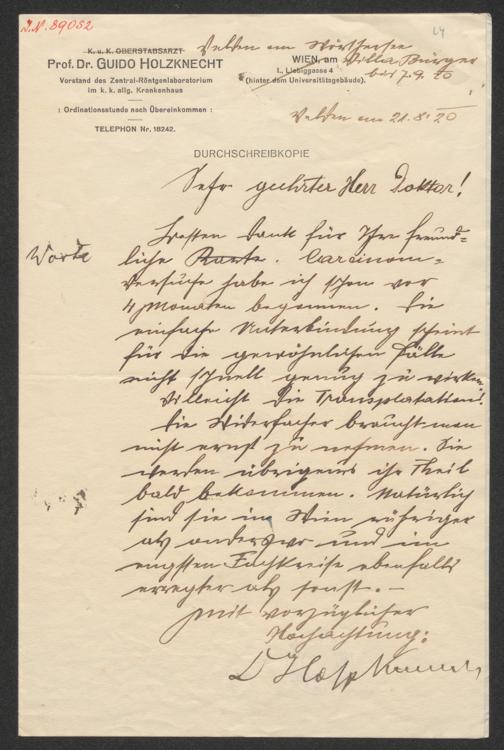 J.N. 89052
K. u. K. OBERSTABSARZT
Prof. Dr. GUIDO HOLZKNECHT
Vorstand des Zentral-Röntgenlaboratorium
im k. k. allg. Krankenhaus
: Ordinationsstunde nach Übereinkommen :
TELEPHON Nr. 18242.
Velden am Wörthersee
WIEN, am Villa Bürger
I., Liebiggasse 4
(hinter dem Universitätsgebäude).
bis 7.9. 20
Velden am 21.8. 20
DURCHSCHREIBKOPIE
Sehr geehrter Herr Doktor!
Besten Dank für Ihre freund=
Worte
liche Karte. Carcinom=
versuche habe ich schon vor
4 Monaten begonnen. Die
einfache Unterbindung scheint
für die gewöhnlichen Fälle
nicht schnell genug zu wirken.
Vielleicht die Transplatation.
Die Widersacher braucht man
nicht ernst zu nehmen. Sie
werden übrigens ihr Theil
bald bekommen. Natürlich
sind sie in Wien rühriger
als anderswo und im
engsten Fachkreise ebenfalls
erregter als sonst. –
Mit vorzüglicher
Hochachtung:
D Holzknecht